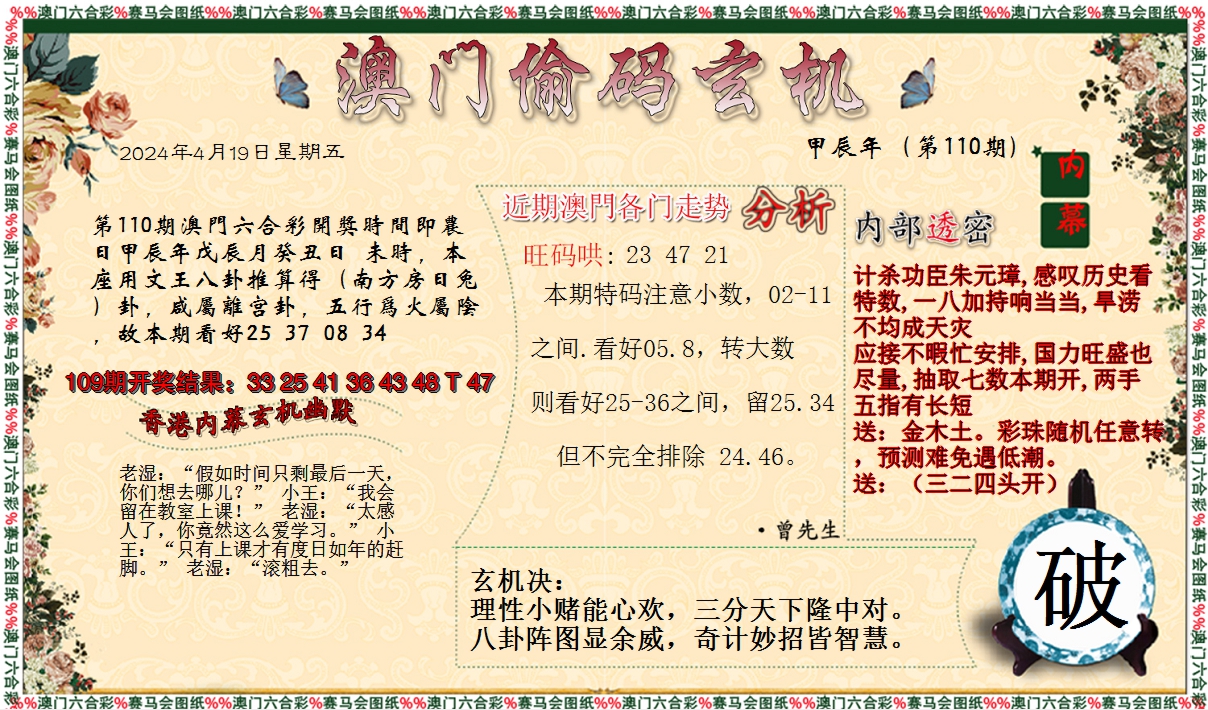 %%澳门六合彩%赛马会图纸%%澳门六合彩%赛马会图纸%%澳门六合彩%赛马会图纸%%澳门六合彩%赛马会图纸%%澳门六合彩%赛马会图纸%%澳门六合彩%赛马会图纸%%
澳门偷码玄机
2024年4月19日星期五
甲辰年（第110期）
内幕
第110期澳門六合彩開獎時間即農
日甲辰年戊辰月癸丑日 未時，本
座用文王八卦推算得（南方房日兔
）卦，咸屬離宫卦，五行爲火屬陰
，故本期看好25 37 08 34
109期开奖结果：33 25 41 36 43 48 T 47
香港内幕玄机幽默
老湿：“假如时间只剩最后一天，
你们想去哪儿？” 小王：“我会
留在教室上课！” 老湿：“太感
人了，你竟然这么爱学习。” 小
王：“只有上课才有度日如年的赶
脚。” 老湿：“滚粗去。”
近期澳門各门走势 分析
旺码哄: 23 47 21
本期特码注意小数，02-11
之间.看好05.8，转大数
则看好25-36之间，留25.34
但不完全排除 24.46。
·曾先生
内部透密
计杀功臣朱元璋,感叹历史看
特数,一八加持响当当,旱涝
不均成天灾
应接不暇忙安排,国力旺盛也
尽量,抽取七数本期开,两手
五指有长短
送：金木土。彩珠随机任意转
，预测难免遇低潮。
送：（三二四头开）
玄机决：
理性小赌能心欢，三分天下隆中对。
八卦阵图显余威，奇计妙招皆智慧。
破
%%澳门六合彩%赛马会图纸%%澳门六合彩%赛马会图纸%%澳门六合彩%赛马会图纸%%澳门六合彩%赛马会图纸%%澳门六合彩%赛马会图纸%%澳门六合彩%赛马会图纸%%